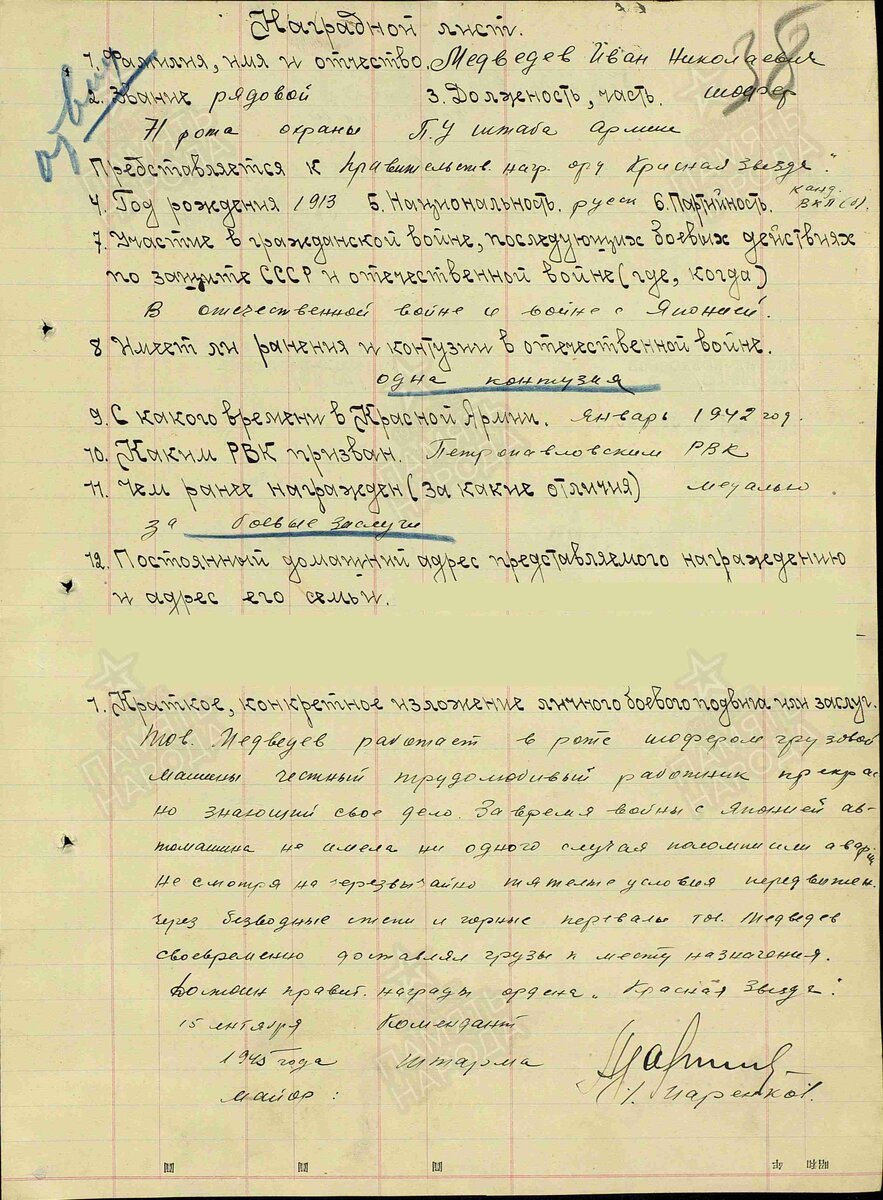 Наградной лист.
38
1. Фамилия, имя и отчество. Медведев Иван Николаевич
2. Звание рядовой 3. Должность, часть. шофер
71 рота охраны П.У штаба армии
Представляется к правительств. наг. орд "Красная Звезда".
4. Год рождения 1913 5. Национальность. русск 6. Партийность. канд. ВКП(б).
7. Участие в гражданской войне, последующих боевых действиях
по защите СССР и отечественной войне (где, когда)
В отечественной войне и войне с Японией.
8 Имеет ли ранения и контузии в отечественной войне.
одна контузия
9. С какого времени в Красной Армии. Январь 1942 год.
10. Каким РВК призван. Петропавловским РВК
11. Чем ранее награжден (за какие отличия) медалью
за боевые заслуги
12. Постоянный домашний адрес представляемого награждению
и адрес его семьи.
1. Краткое, конкретное изложение личного боевого подвига или заслуг.
Тов. Медведев работает в роте шофером грузовой
машины честный трудолюбивый работник прекрас
но знающий свое дело. За время войны с Японией ав-
томашина не имела ни одного случая поломки или аварии
Не смотря на черезвычайно тяжелые условия передвижен.
через безводные степи и горные перевалы тов. Медведев
своевременно доставлял грузы к месту назначения.
Достоин правит. награды ордена "Красная Звезда".
15 сентября Комендант
1945 года штарма
майор:
ПАМЯТЬ НАРОДА